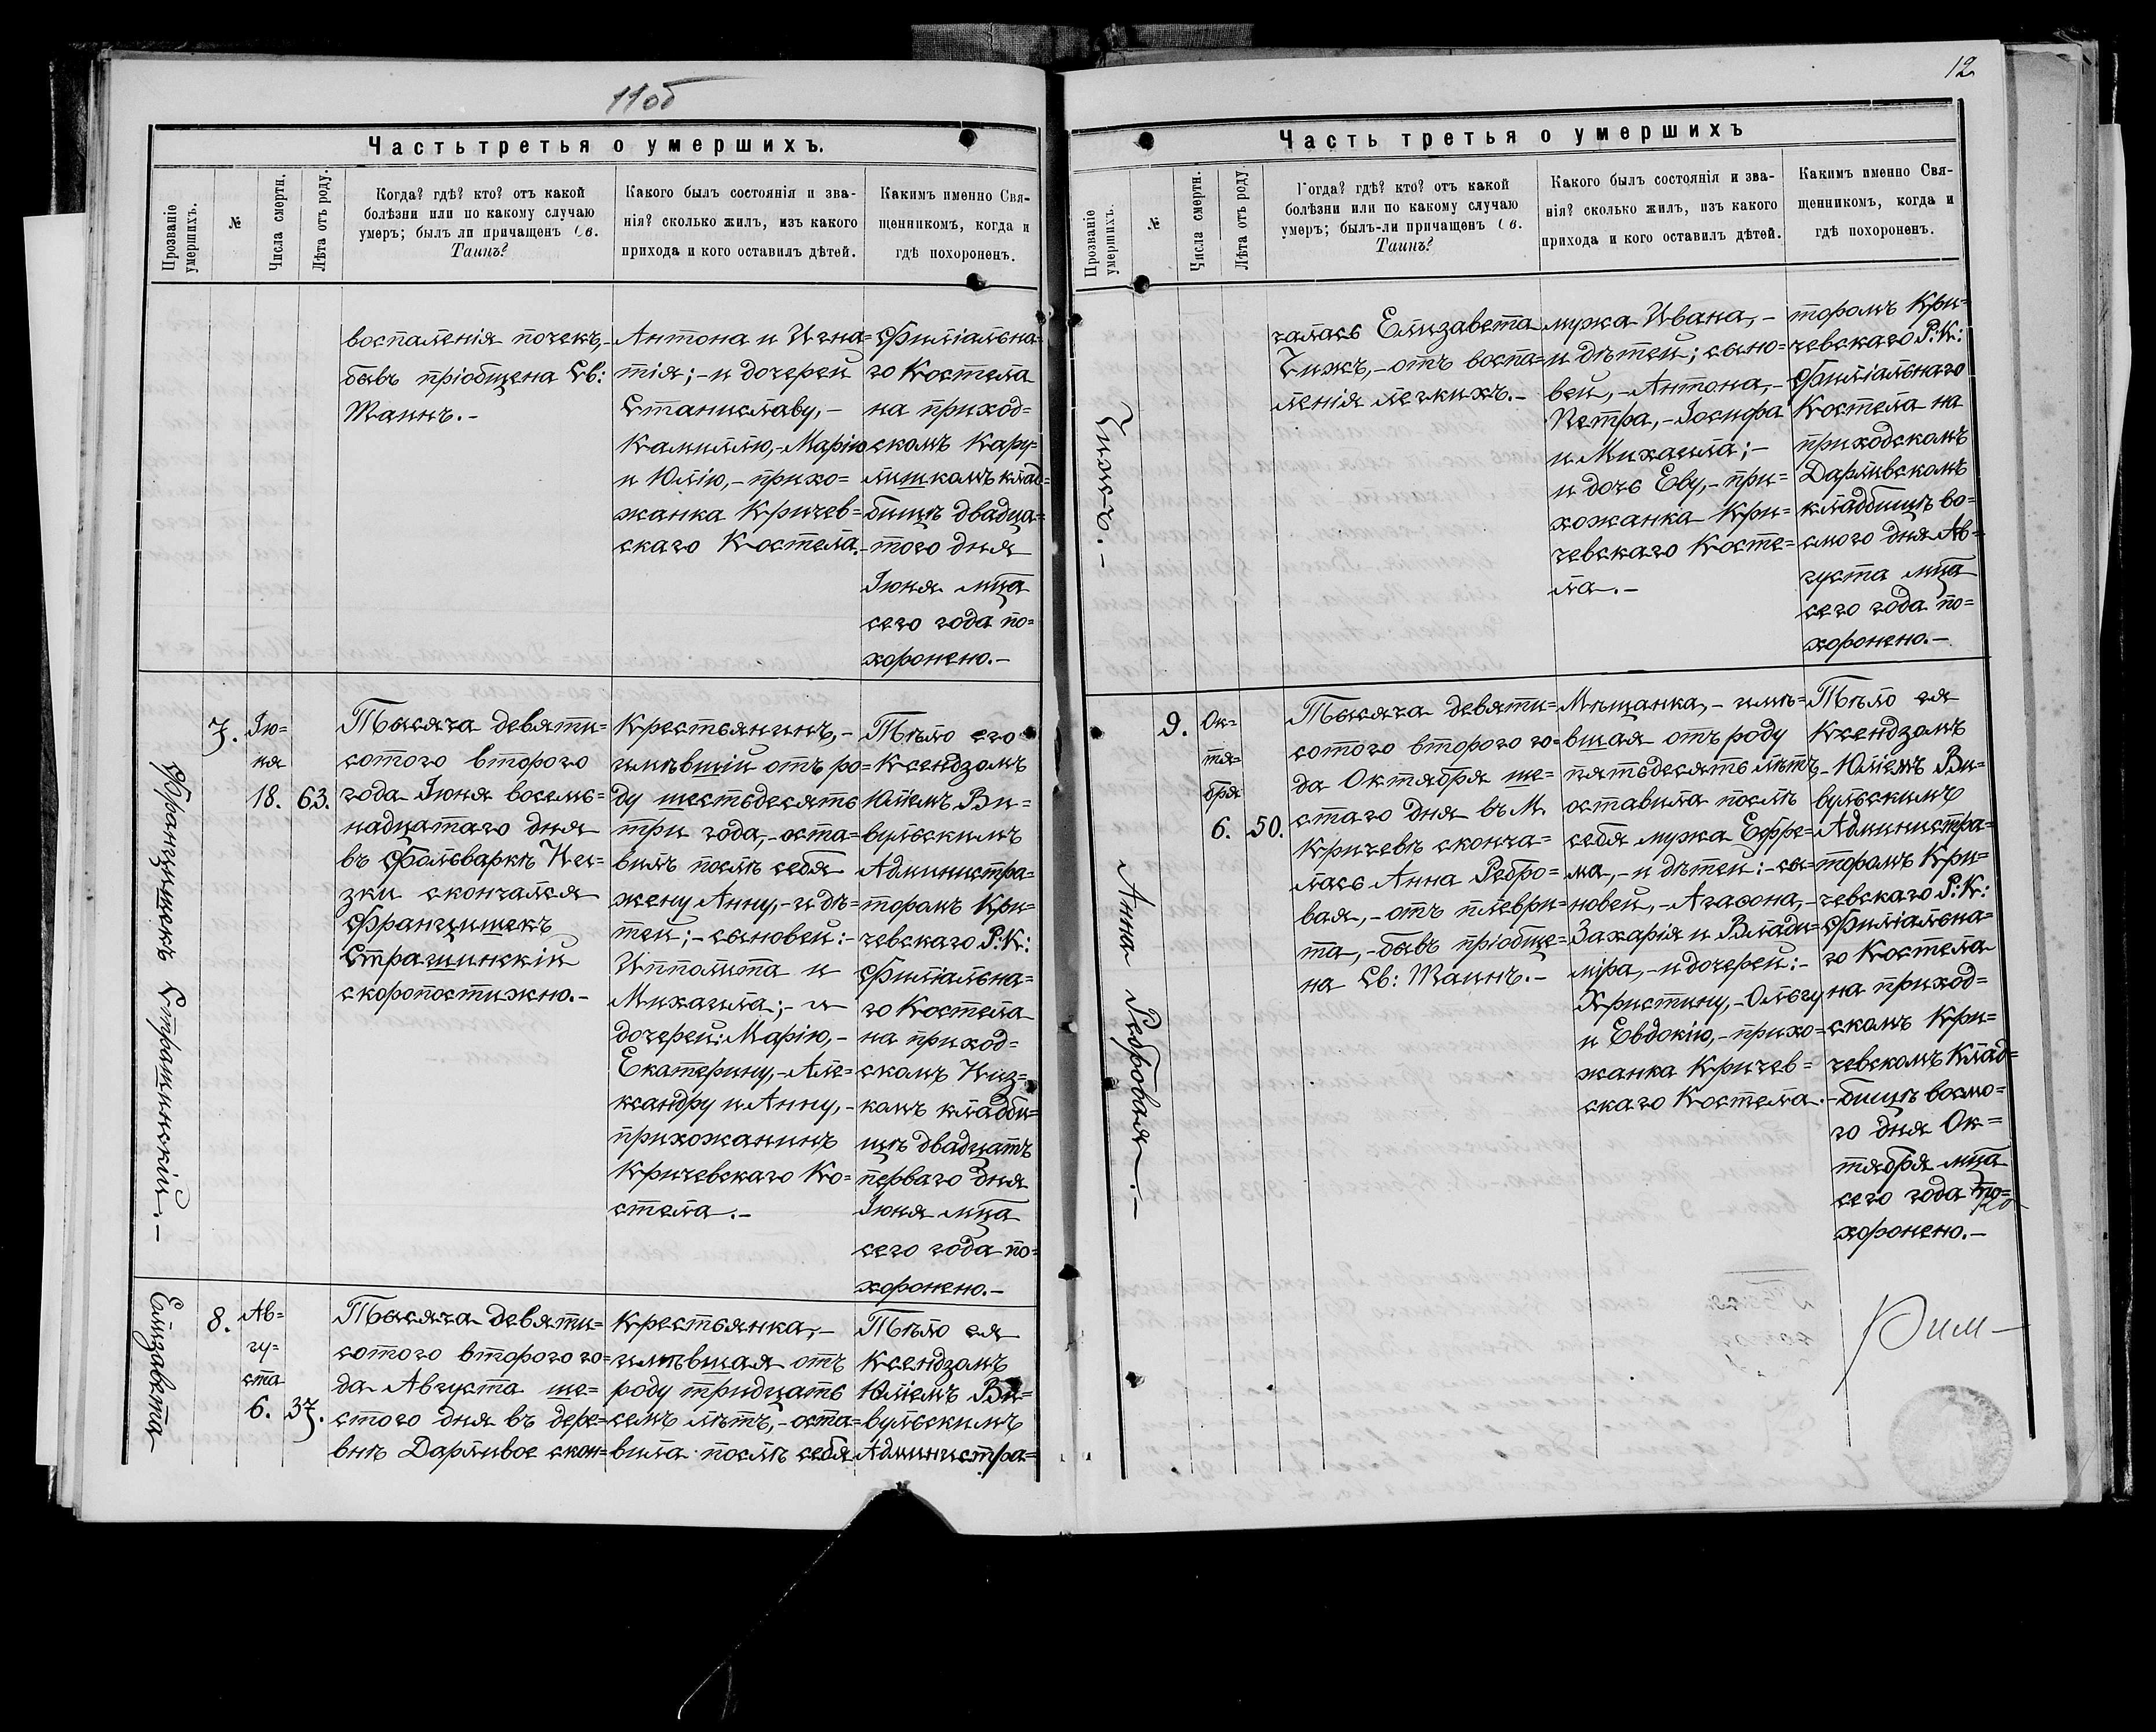 11об
Часть третья о умершихъ.
Прозваніе умершихъ.
№
Числа смерти.
Лѣта отъ роду.
Когда? гдѣ? кто? отъ какой
болѣзни или по какому случаю
умеръ; былъ ли причащенъ Св.
Таинъ?
Какого былъ состоянія и зва-
нія? сколько жилъ, изъ какого
прихода и кого оставилъ дѣтей.
Какимъ именно Свя-
щенникомъ, когда и
гдѣ похороненъ.
воспаленія почекъ,-
бывъ пріобщена Св:
Таинъ.-
Антона и Игна=
тія;- и дочерей
Станиславу,-
Камиллю,- Марію
и Юлію,- прихо=
жанка Кричев=
скаго Костела.-
Филіальна=
го Костела
на приход=
скомъ Кару=
лишкомъ клад=
бищѣ двадца=
того дня
Іюня мца
сего года по=
хоронено.-
Францишекъ Страшинскій.-
7.
Ію=
ня
18.
63.
Тысяча девяти=
сотого второго
года Іюня восемь=
надцатаго дня
въ Фольваркѣ Ни=
зки скончался
Францишекъ
Страшинскій
скоропостижно.-
Крестьянинъ,-
имѣвшій отъ ро=
ду шестьдесятъ
три года,- оста=
вилъ послѣ себя
жену Анну,- и дѣ=
тей;- сыновей:-
Ипполита и
Михаила;- и
дочерей: Марію,-
Екатерину,- Але=
ксандру и Анну,-
прихожанинъ
Кричевскаго Ко=
стела.-
Тѣло его
Ксендзомъ
Юліемъ Ви=
бульскимъ
Администра=
торомъ Кри=
чевскаго Р:К:
Филіальна=
го Костела
на приход=
скомъ Низ=
комъ кладби=
щѣ двадцать
перваго дня
Іюня мца
сего года по=
хоронено.-
Елизавета
8.
Ав=
гу=
ста
6.
37.
Тысяча девяти=
сотого второго го=
да Августа ше=
стого дня въ дере=
внѣ Дарливое скон=
Крестьянка,-
имѣвшая отъ
роду тридцать
семь лѣтъ,- оста=
вила послѣ себя
Тѣло ея
Ксендзомъ
Юліемъ Ви=
бульскимъ
Администра=
12
Часть третья о умершихъ
Прозваніе умершихъ.
№
Числа смерти.
Лѣта отъ роду.
Когда? гдѣ? кто? отъ какой
болѣзни или по какому случаю
умеръ; былъ-ли причащенъ Св.
Таинъ?
Какого былъ состоянія и зва-
нія? сколько жилъ, изъ какого
прихода и кого оставилъ дѣтей.
Какимъ именно Свя-
щенникомъ, когда и
гдѣ похороненъ.
Чижъ.-
чалась Елизавета
Чижъ,- отъ воспа=
ленія легкихъ.-
мужа Ивана,-
и дѣтей; сыно=
вей,- Антона,-
Петра,- Іосифа
и Михаила;-
и дочь Еву,- при=
хожанка Кри=
чевскаго Косте=
ла.-
торомъ Кри=
чевскаго Р:К:
Филіальнаго
Костела на
приходскомъ
Дарливскомъ
кладбищѣ во=
смого дня Ав=
густа мца
сего года по=
хоронено.-
Анна Ребровая.-
9.
Ок=
тя=
бря
6.
50.
Тысяча девяти=
сотого второго го=
да Октября ше=
стаго дня въ М.
Кричевѣ сконча=
лась Анна Ребро=
вая,- отъ плеври=
та,- бывъ пріобще=
на Св: Таинъ.-
Мѣщанка,- имѣ=
вшая отъ роду
пятьдесятъ лѣтъ,-
оставила послѣ
себя мужа Ефре=
ма,- и дѣтей:- сы=
новей,- Агафона,-
Захарія и Влади=
міра,- и дочерей:-
Христину,- Ольгу
и Евдокію,- прихо=
жанка Кричев=
скаго Костела.-
Тѣло ея
Ксендзомъ
Юліемъ Ви=
бульскимъ
Администра=
торомъ Кри=
чевскаго Р:К:
Филіальна=
го Костела
на приход=
скомъ Кри=
чевскомъ Клад=
бищѣ восмо=
го дня Ок=
тября мца
сего года по=
хоронено.-
Рим-